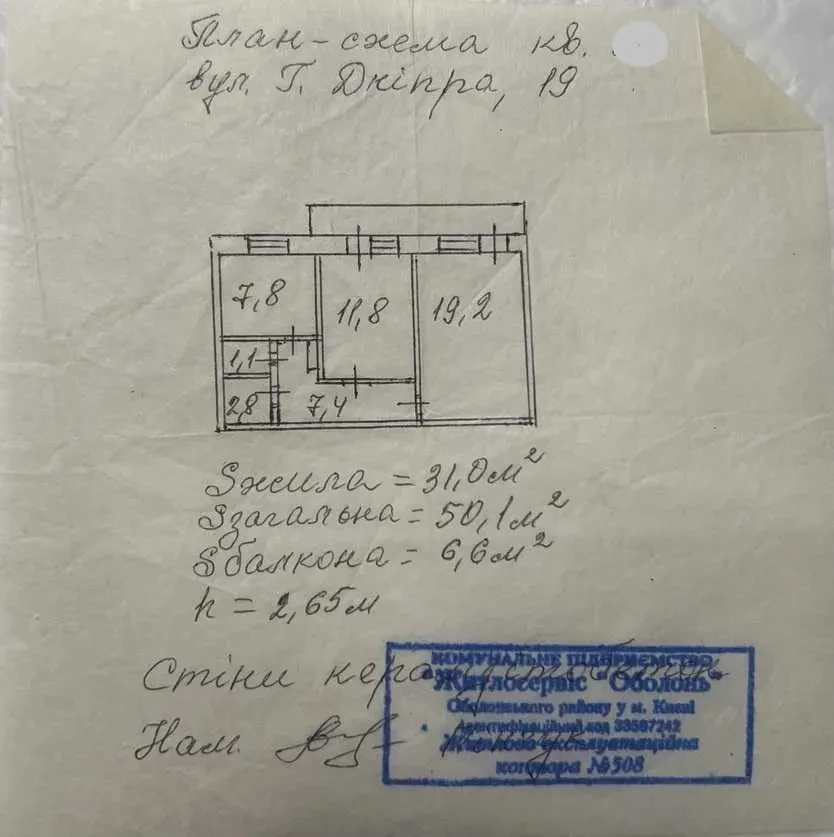 План-схема кв.
вул. Г. Дніпра, 19
7,8
11,8
19,2
1,1
2,8
7,4
Sжила = 31,0м²
Sзагальна = 50,1м²
Sбалкона = 6,6м²
h = 2,65м
Стіни
КОМУНАЛЬНЕ ПІДПРИЄМСТВО
"Житлосервіс "Оболонь"
Оболонського району у м. Києві
Ідентифікаційний код 33597242
Житлово-експлуатаційна
контора №508
Нач.